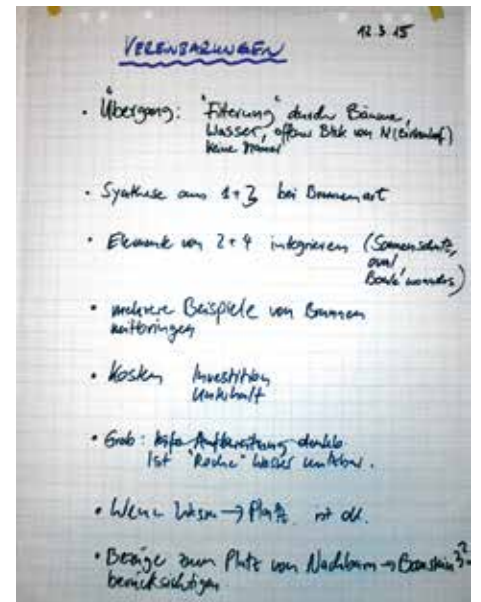 12.3.15
VEREINBARUNGEN
• Übergang: "Filterung" durch Bäume,
Wasser, offener Blick von N (Birkenhof)
keine Mauer
• Synthese aus 1+3 bei Brunnenart
• Elemente von 2+4 integrieren (Sonnenschutz,
oval
• mehrere Beispiele von Brunnen
mitbringen
• Kosten Investition
Unterhalt
• Grob: Aufbereitung
Ist "Roche" Wasser nutzbar.
• Wenn → Platz ist ok.
• Bezüge zum Platz von Nachbarn →
berücksichtigen